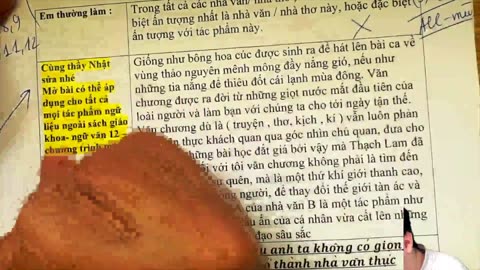 Em thường làm :
Trong tất cả các nhà văn/ nhà thơ
biệt ấn tượng nhất là nhà văn / nhà thơ này, hoặc đặc biệt
ấn tượng với tác phẩm này.
Cùng thầy Nhật
sửa nhé
Mở bài có thể áp
dụng cho tất cả
mọi tác phẩm ngữ
liệu ngoài sách giáo
khoa- ngữ văn 12
chương trình
Giống như bông hoa cúc được sinh ra để hát lên bài ca về
vùng thảo nguyên mênh mông đầy nắng gió, nếu như
những tia nắng để thiêu đốt cái lạnh mùa đông. Văn
chương được ra đời từ những giọt nước mắt đầu tiên của
loài người và làm bạn với chúng ta cho tới ngày tận thế.
Văn chương dù là ( truyện , thơ, kịch , kí ) vẫn luôn phản
thực khách quan qua góc nhìn chủ quan, đưa cho
những bài học đắt giá bởi vậy mà Thạch Lam đã
với tôi văn chương không phải là tìm đến
quên, mà là một thứ khí giới thanh cao,
người, để thay đổi thế giới tàn ác và
của nhà văn B là một tác phẩm như
dấu ấn của cá nhân vừa cất lên những
đạo sâu sắc
anh ta không có
thành nhà văn thực